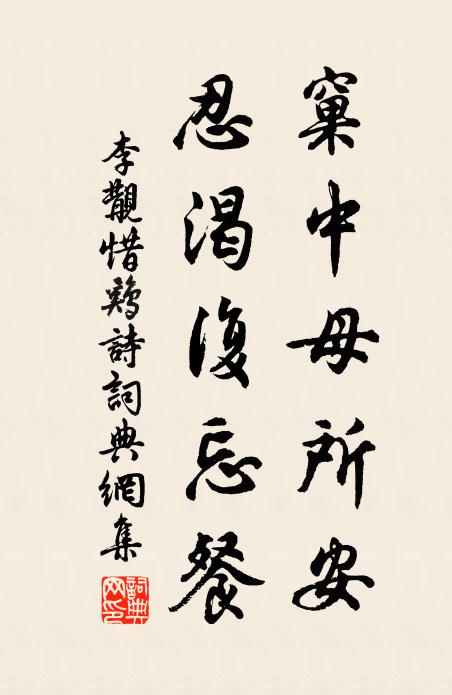 窠中母所安
忍渴復忘餐
李覯惜鷄詩詞典網集
詞典网印